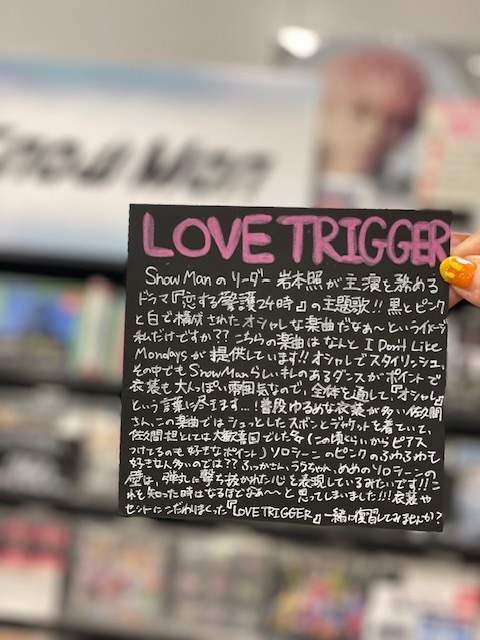 Snow Man
LOVE TRIGGER
Snow Manのリーダー岩本照が主演を務める
ドラマ『恋する警護24時』の主題歌!!黒とピンク
と白で構成されたオシャレな楽曲だなぁ〜というイメージ
私だけですか??こちらの楽曲はなんとI Don't Like
Mondaysが提供しています!!オシャレでスタイリッシュ、
その中でもSnowManらしいキレのあるダンスがポイントで
衣装も大人っぽい雰囲気なので、全体を通して『オシャレ』
という言葉に尽きます...!普段ゆるめな衣装が多い佐久間
さん、この楽曲ではシュッとしたズボンとジャケットを着ていて、
佐久間担としては大歓喜国でした(この頃らいからピアス
つけてるのも好きなポイント)ソロシーンのピンクのふわふわも
好きな人多いのでは??ふっかさん、ラウちゃん、めめのソロシーンの
壁は、弾丸に撃ち抜かれた心を表現しているみたいです!!こ
れを知った時はなるほどなあ〜と思ってしまいました!!!衣装や
セットにこだわりまくった『LOVE TRIGGER』一緒に復習してみませんか?